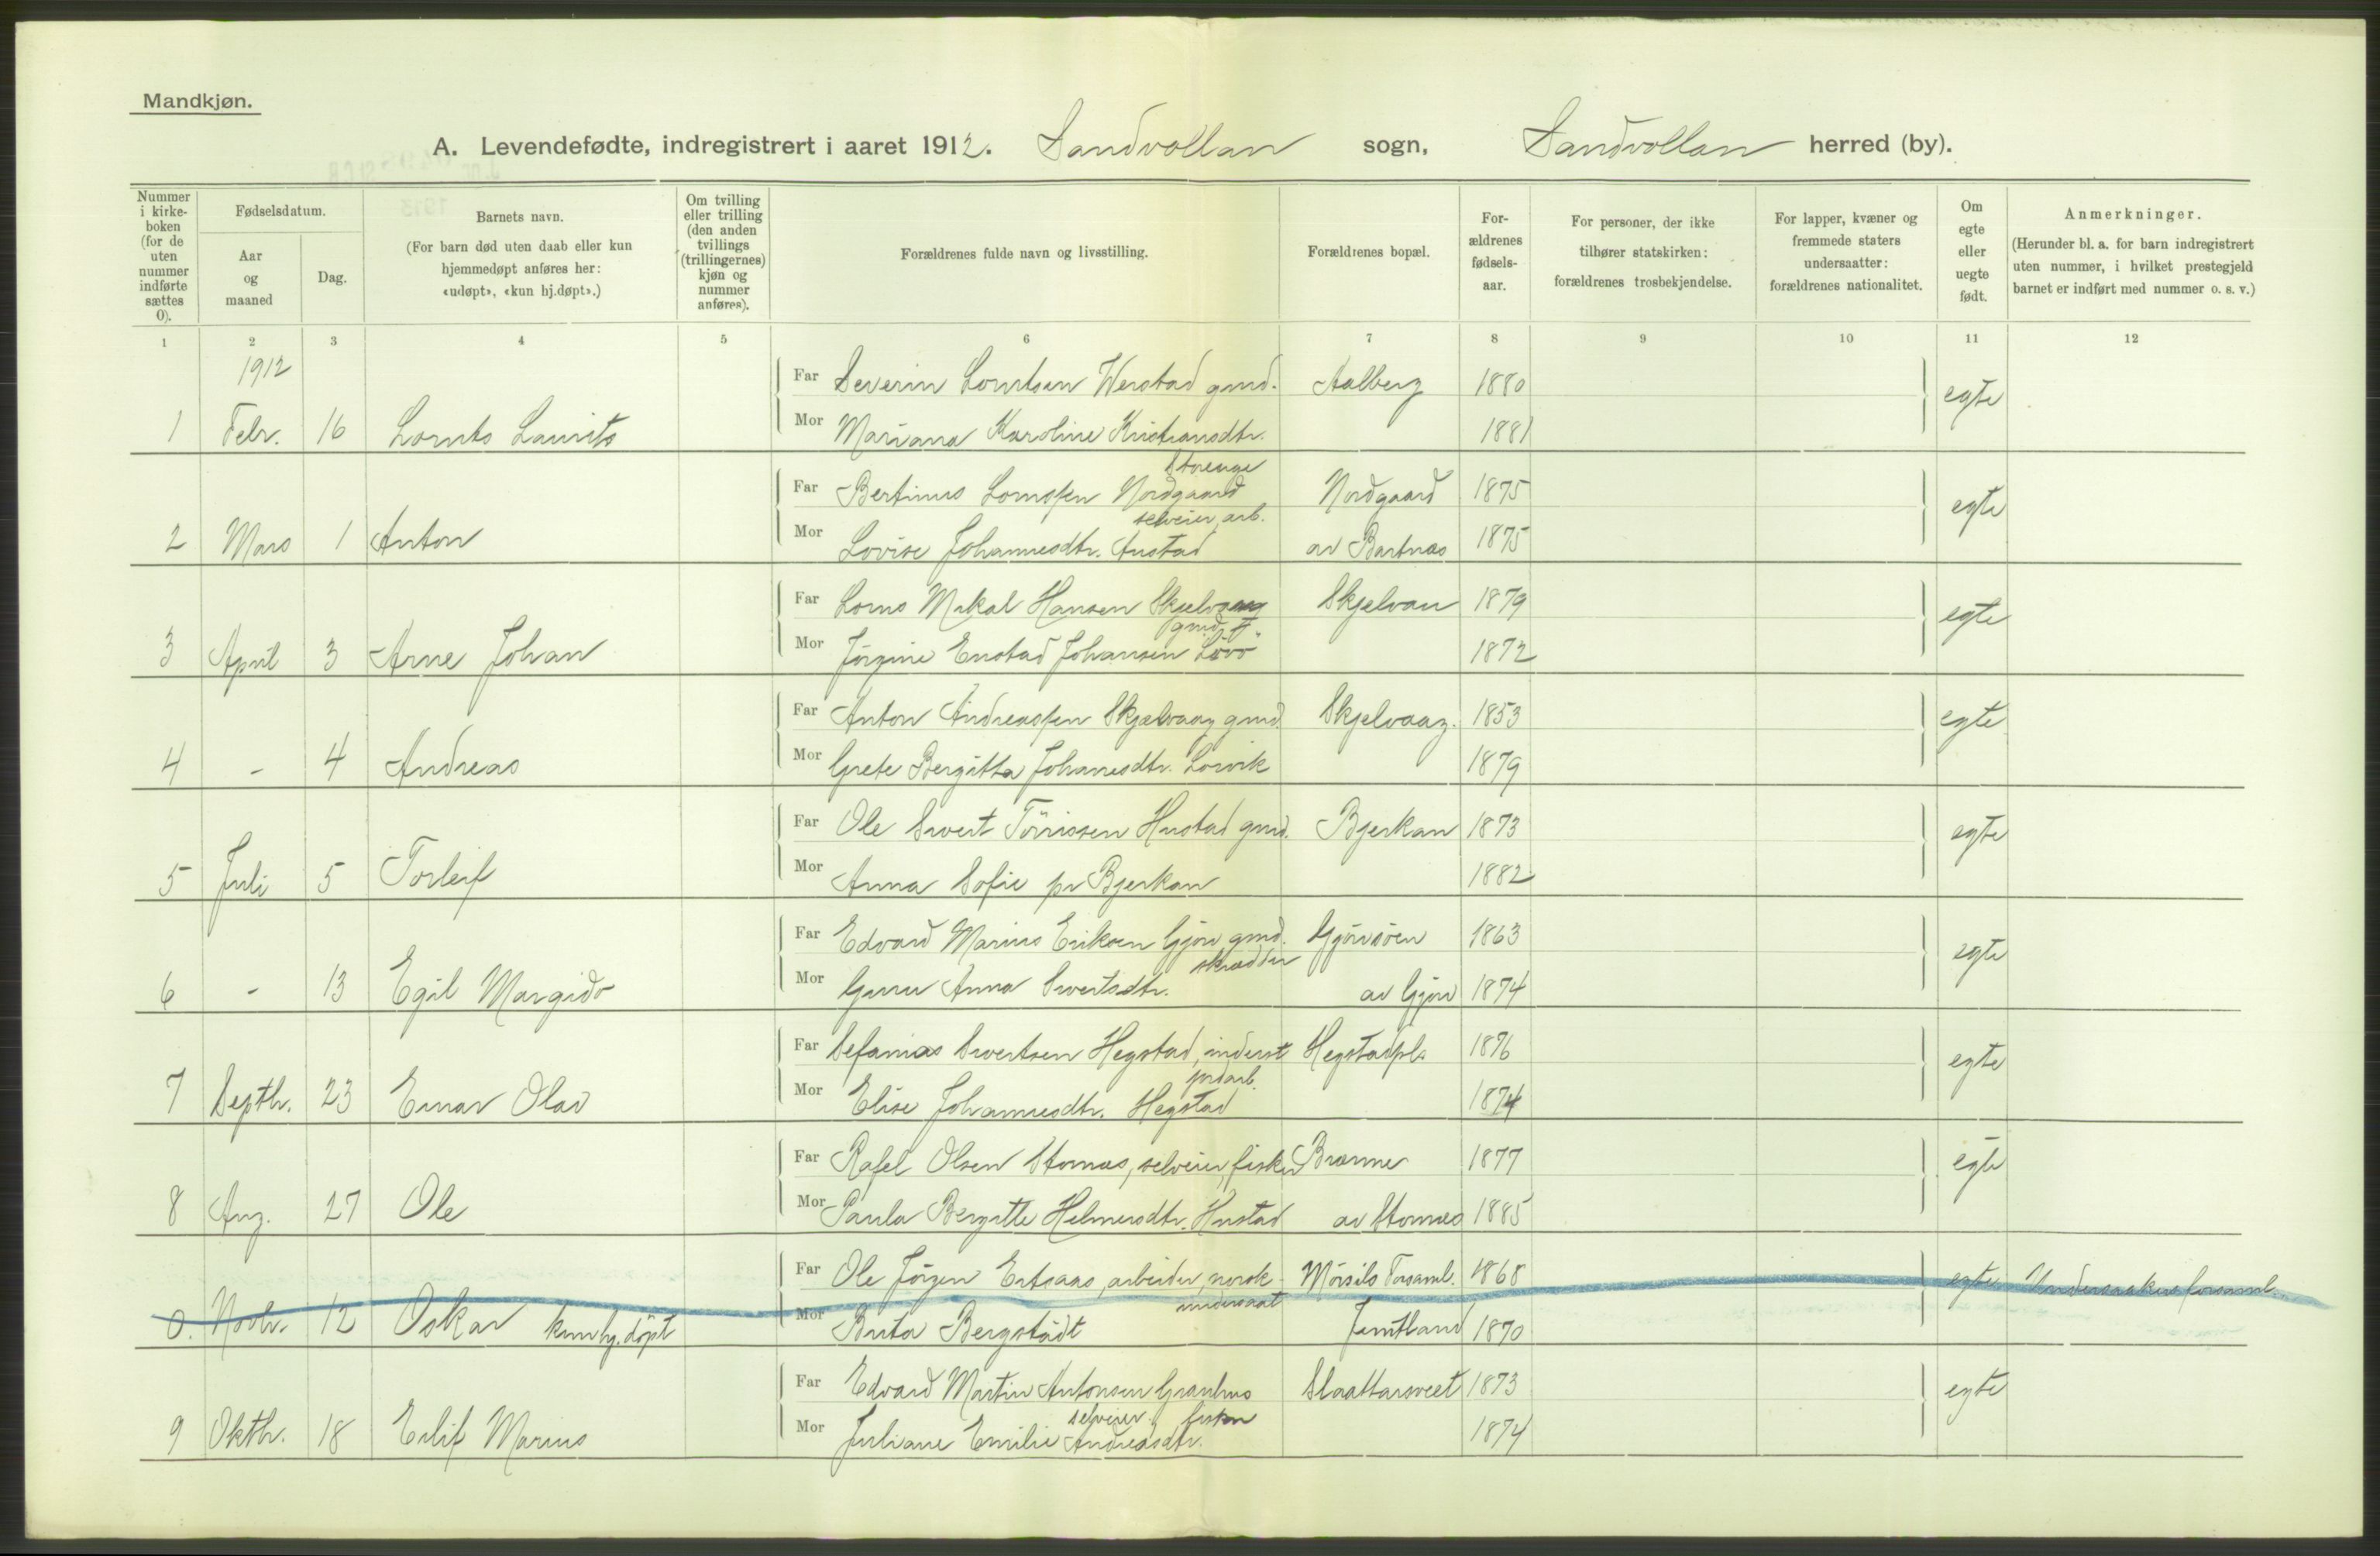 Mandkjøn.
A. Levendefødte, indregistrert i aaret 1912. Sandvollan sogn, Sandvollan herred (by).
Nummer i kirke-boken (for de uten nummer indførte sættes 0).
Fødselsdatum.
Aar og maaned
Dag.
Barnets navn.
(For barn død uten daab eller kun hjemmedøpt anføres her: «udøpt», «kun hj.døpt».)
Om tvilling eller trilling (den anden tvillings (trillingernes) kjøn og nummer anføres).
Forældrenes fulde navn og livsstilling.
Forældrenes bopæl.
For-ældrenes fødsels-aar.
For personer, der ikke tilhører statskirken: forældrenes trosbekjendelse.
For lapper, kvæner og fremmede staters undersaatter: forældrenes nationalitet.
Om egte eller uegte født.
Anmerkninger.
(Herunder bl. a. for barn indregistrert uten nummer, i hvilket prestegjeld barnet er indført med nummer o. s. v.)
1 2 3 4 5 6 7 8 9 10 11 12
1912
Far Severin Lorntsen Werstad gmd. Aalberg 1880 egte
1 Febr. 16 Lornts Laurits Mor Mariana Karoline Kristiansdtr. 1881
Storenge
Far Bertinus Lornssen Nordgaard Nordgaard 1875 egte
selveier, arb.
2 Mars 1 Anton Mor Lovise Johannesdtr. Austad av Bartnes 1875
Far Lorns Mikal Hansen Skjelvaag Skjelvan 1879 egte
gmd.
3 April 3 Arne Johan Mor Jörgine Enstad Johansen 1872
Far Anton Andreassen Skjelvaag gmd. Skjelvaag. 1853 egte
4 - 4 Andreas Mor Grete Bergitta Johanesdtr. Lorvik 1879
Far Ole Sivert Törrissen Hustad gmd. Bjerkan 1873 egte
5 Juli 5 Torleif Mor Anna Sofie pr Bjerkan 1882
Far Edvard Marius Eriksen Gjörv gmd. Gjörvsöen 1863 egte
skrædder
6 - 13 Egil Margido Mor Anna Sivertsdtr. av Gjörv 1874
Far Sefanias Sivertsen Hegstad, inderst Hegstadpl. 1876 egte
jordarb.
7 Septbr. 23 Einar Olav Mor Elise Johannesdtr. Hegstad 1874
Far Rafel Olsen Stornes, selveier, fisker Brænne 1877 egte
8 Aug. 27 Ole Mor Paula Bergitte Helmersdtr. Hustad av Stornes 1885
Far Ole Jörgen Ertsaas, arbeider, norsk Mörsils Forsaml. 1868 egte Undersaakers forsaml.
undersaat
0. Novbr. 12 Oskar kun hj. döpt Mor Brita Bergstädt Jemtland 1870
Far Edvard Martin Antonsen Granhus Slaattarsveet 1873 egte
selveier fisker
9 Oktbr. 18 Erlif Marius Mor Juliane Emilie Andreasdtr. 1874